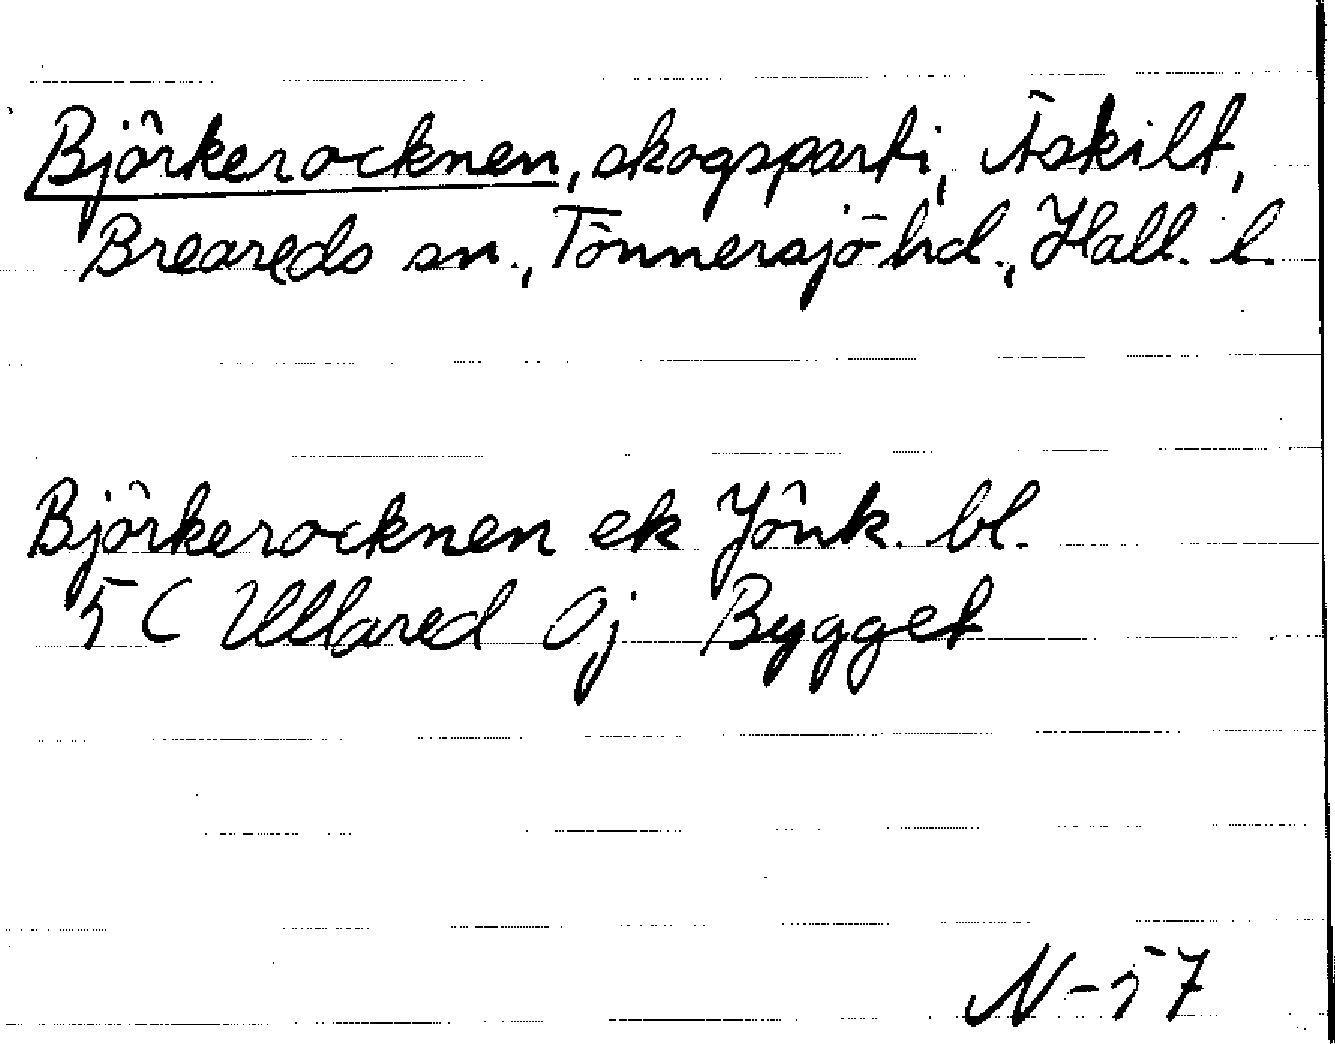 Björkerocknen, skogsparti, Äskilt,
Breareds sn., Tönnersjö hd., Hall. l.
Björkerocknen ek Jönk. bl.
5C Ullared Oj Bygget
N-57